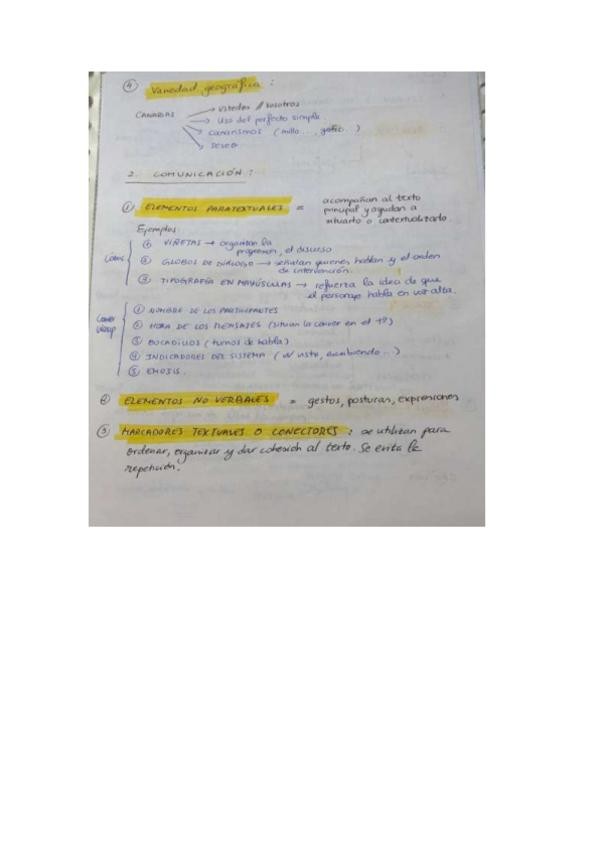 ④ Variedad geográfica:
CANARIAS → Ustedes // vosotros
→ Uso del perfecto simple.
→ canarismos (millo..., gofio..)
→ seseo
2. COMUNICACIÓN:
① ELEMENTOS PARATEXTUALES = acompañan al texto
principal y ayudan a
situarlo o contextualizarlo.
Ejemplos:
Cómic
① VIÑETAS → organizan la
progresión, el discurso
② GLOBOS DE DIÁLOGO → señalan quienes hablan y el orden
de intervención.
③ TIPOGRAFÍA EN MAYÚSCULAS → refuerza la idea de que
el personaje habla en voz alta.
① NOMBRE DE LOS PARTICIPANTES
② HORA DE LOS MENSAJES (sitúan la conver en el tº)
③ BOCADILLOS (turnos de habla)
④ INDICADORES DEL SISTEMA (visto, escribiendo...)
⑤ EMOJIS.
② ELEMENTOS NO VERBALES = gestos, posturas, expresiones
③ MARCADORES TEXTUALES O CONECTORES: se utilizan para
ordenar, organizar y dar cohesión al texto. Se evita la
repetición.